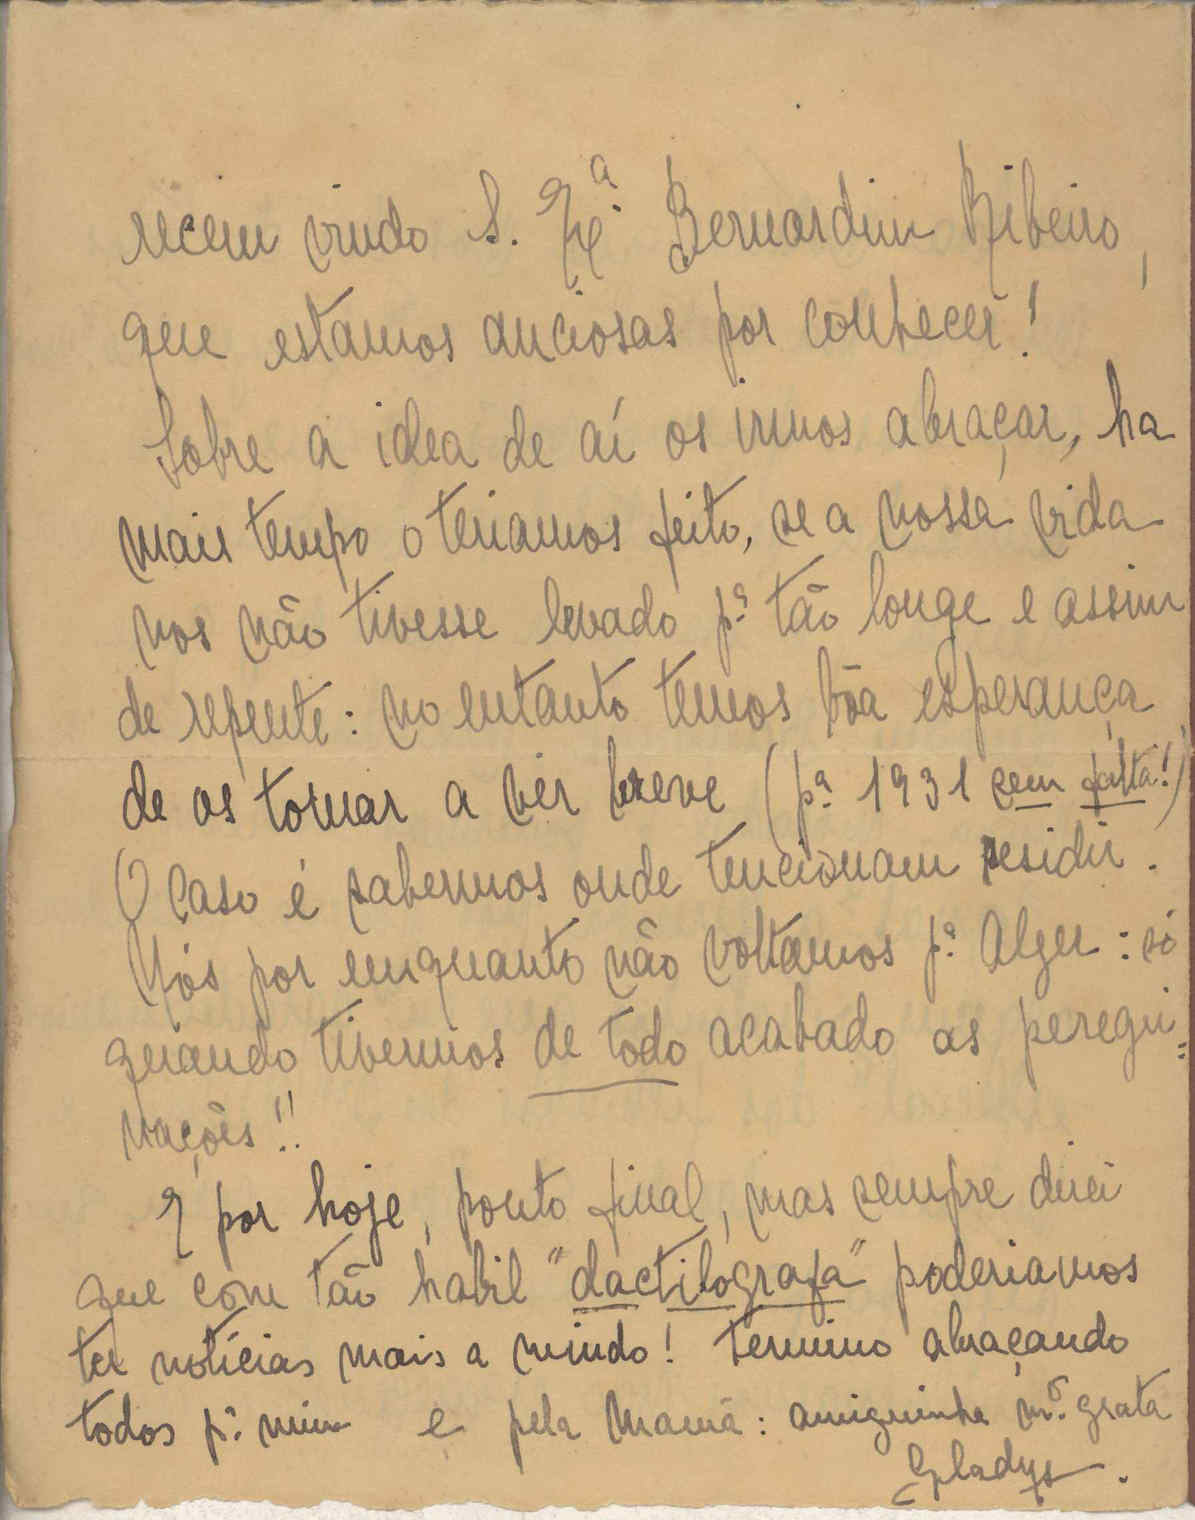 recem vindo S. Exª Bernardim Ribeiro,
que estamos anciosas por conhecer!
Sobre a idea de aí os irmos abraçar, ha
mais tempo o teriamos feito, se a nossa vida
nos não tivesse levado pª tão longe e assim
de repente: no entanto temos bôa esperança
de os tornar a vêr breve (pª 1931 sem falta!)
O caso é sabermos onde tencionam residir.
Nós por emquanto não voltamos pª Alger: só
quando tivermos de todo acabado as peregri=
nações!!
E por hoje, ponto final, mas sempre direi
que com tão habil "dactilografa" poderiamos
ter notícias mais a miudo! Termino abraçando
todos pr. mim e pela Mamã: amiguinha mtº grata
Gladys.